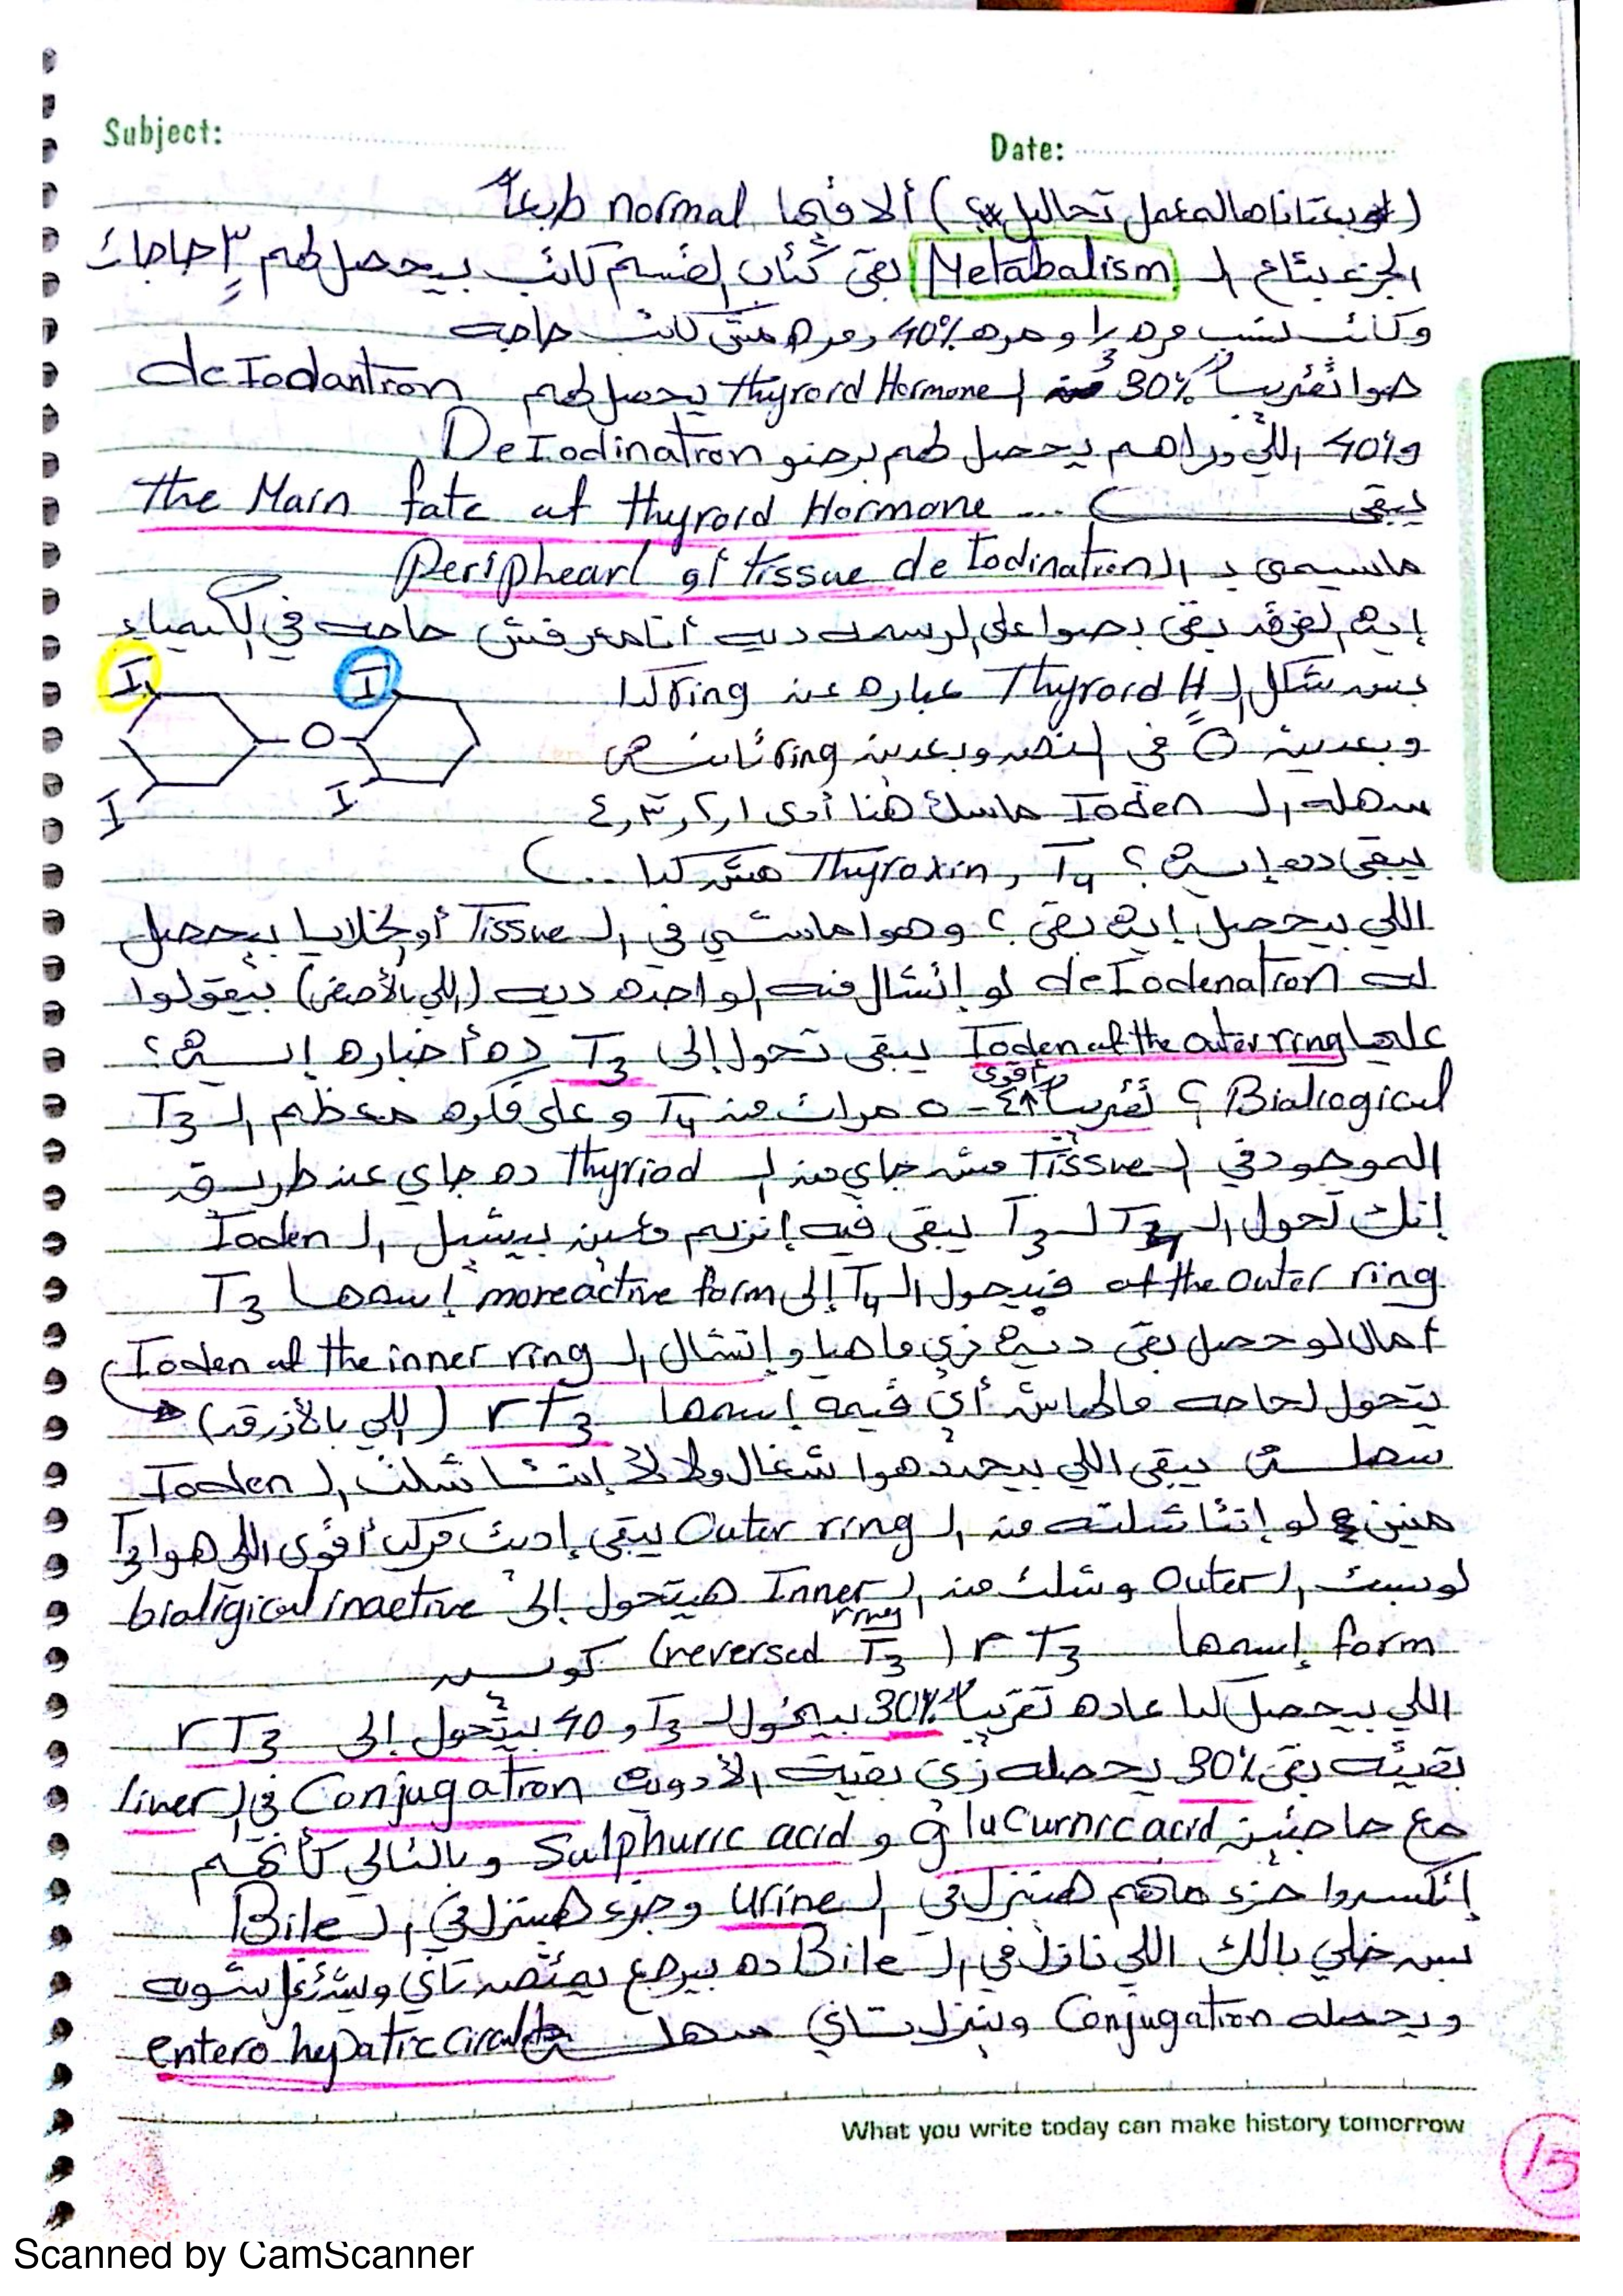 Subject:
Date:
المعمل تحاليل ) ألاقيها normal طبعاً
الجزء بتاع الـ Metabalism بقى كتاب القسم كاتب بيحصل لهم ٣ حاجات
وكاتب نسب مره و مره 40% ومره مش كاتب حاجه
هوا تقريباً 30% من الـ Thyroid Hormone يحصلهم deIodantion
و40% اللي وراهم يحصل لهم برضو DeIodination
يبقى the Main fate of thyroid Hormone ...
هاسيمى بـ الـ Periphearl of tissue de Iodination
إيه الفرق بقى بصوا على الرسمه ديه أنا معرفش حاجه في الكيمياء
بس شكل الـ Thyroid H عباره عن ring كدا
وبعدين O في النص وبعدين ring ثانيه
سهله الـ Ioden ماسك هنا أدى ١ , ٢ , ٣ , ٤
يبقى ده إيه ؟ T4 , Thyroxin مش كدا ..
I I
O
I I
اللي بيحصل إيه بقى ؟ وهوا ماشي في الـ Tissue أو الخلايا بيحصل
له deIodenation لو إتشال منه الواحده ديه (اللي بالأصفر) بيقولوا
عليها Ioden of the outer ring يبقى تحول إلى T3 ده أخباره إيه ؟
Bialiogical ؟ تقريباً أقوى ٤ - ٥ مرات من T4 وعلى فكره معظم الـ T3
الموجود في الـ Tissue مش جاي من الـ Thyriod ده جاي عن طريق
إنك تحول الـ T4 لـ T3 يبقى فيه إنزيم معين بيشيل الـ Ioden
of the outer ring فيحول الـ T4 إلى more active form إسمها T3
أمال لو حصل بقى ديه زي ما هيا وإتشال الـ Ioden of the inner ring
يتحول لحاجه مالهاش أي قيمه إسمها rT3 (اللي بالأزرق)
سهله يبقى اللي بيحدد هوا شغال ولا لأ إنتا شلت الـ Ioden
منين لو إنتا شلته من الـ Outer ring يبقى إديت مركب أقوى اللي هوا T3
لو سبت الـ Outer وشلت من الـ Inner ring هيتحول إلى bialigical inactive
form إسمها rT3 (reversed T3) كويس
اللي بيحصل كدا عاده تقريباً 30% بيتحول لـ T3 و 40 بيتحول إلى rT3
بقيته بقى 30% يحصله زي بقية الأدويه Conjugation في الـ liver
مع حاجتين glucurnic acid و Sulphuric acid وبالتالي كأنهم
إتكسروا جزء منهم هينزل في الـ urine وجزء هينزل في الـ Bile
بس خلي بالك اللي نازل في الـ Bile ده بيرجع يمتص تاني ويشتغل شويه
ويحصله Conjugation وينزل تاني سهله entero hepatic circul
What you write today can make history tomorrow
15
Scanned by CamScanner